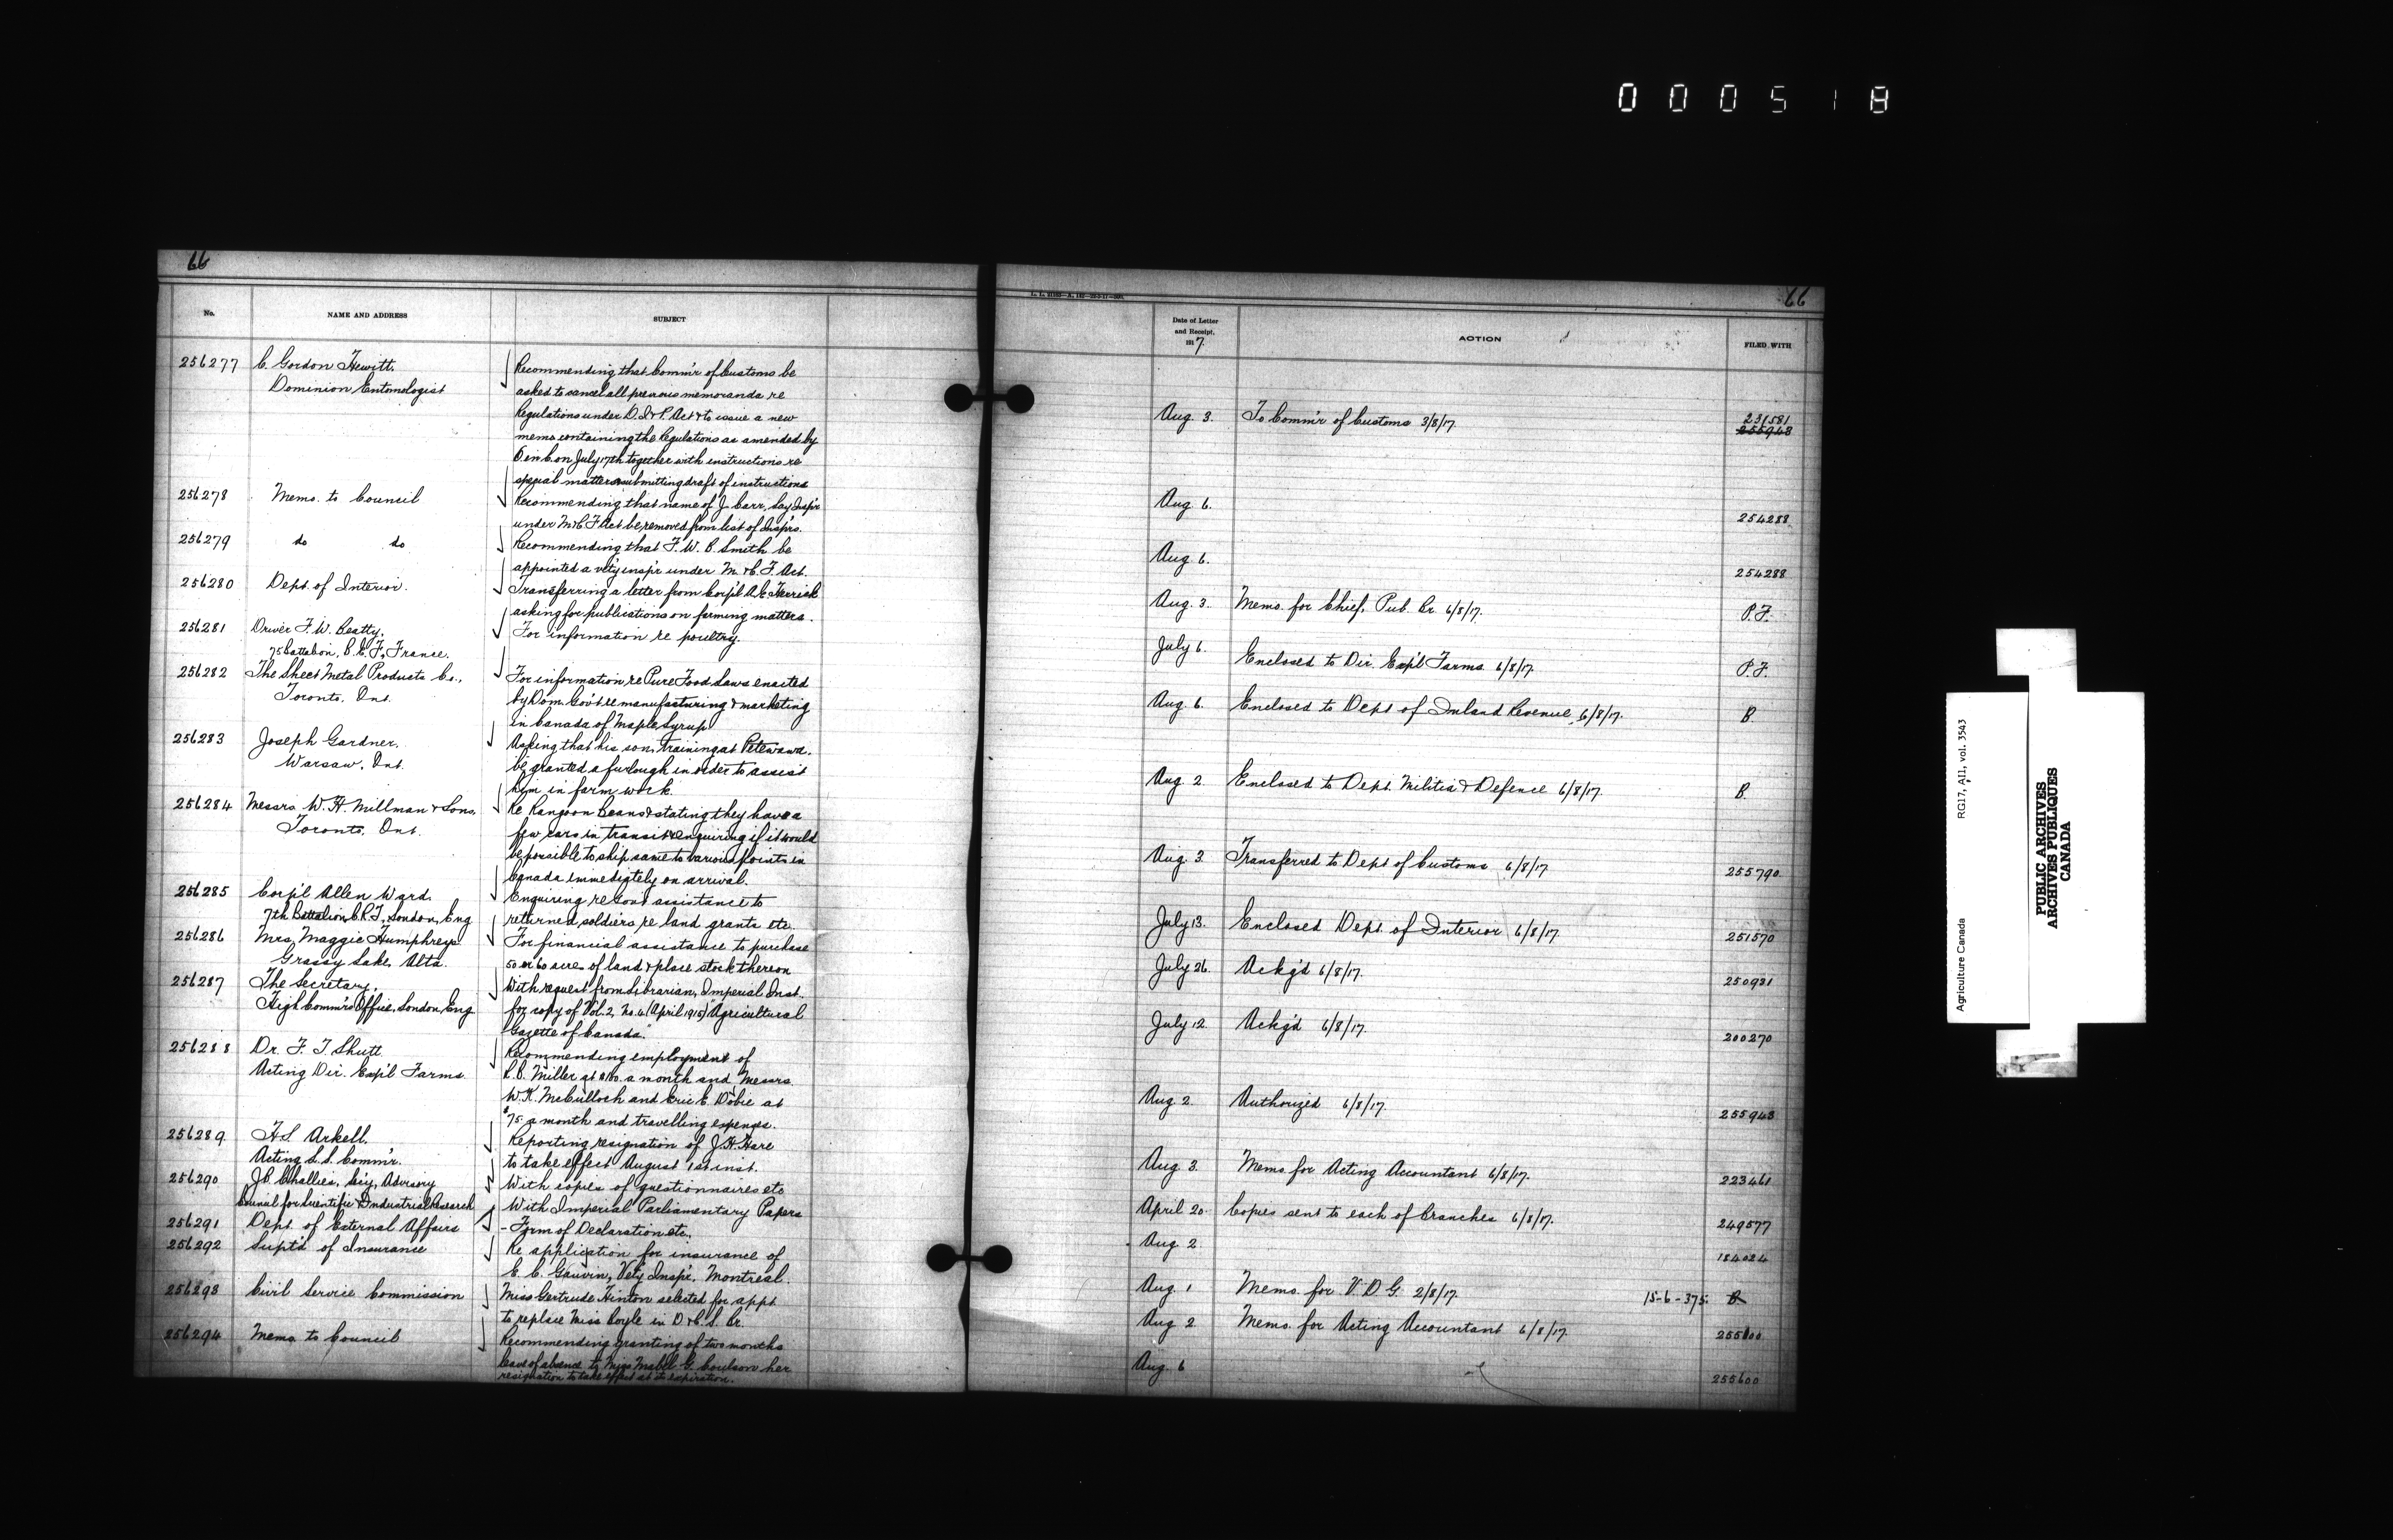 000518
66
No.
NAME AND ADDRESS
SUBJECT
256277 C. Gordon Hewitt.
Dominion Entomologist
Recommending that Comm'r of Customs be
asked to cancel all previous memoranda re
Regulations under D. I & P. Act & to issue a new
memo containing the Regulations as amended by
O. in C. on July 17th together with instructions re
special matters submitting draft of instructions
256278 Memo. to Council
Recommending that name of J. Carr, Lay Insp'r
under M & C F Act be removed from list of Insp'rs.
256279 do do
Recommending that F. W. B. Smith be
appointed a vet'y insp'r under M. & C. F Act.
256280 Dept of Interior.
Transferring a letter from Corp'l A. E. Herrick
asking for publications on farming matters.
256281 Driver F. W. Beatty,
75 Battalion, C. E. F., France.
For information re poultry.
256282 The Sheet Metal Products Co.,
Toronto, Ont.
For information re Pure Food Laws enacted
by Dom. Gov't re manufacturing & marketing
in Canada of Maple Syrup
256283 Joseph Gardner,
Warsaw, Ont.
Asking that his son, training at Petewawa,
be granted a furlough in order to assist
him in farm work.
256284 Messrs. W. H. Millman & Sons,
Toronto, Ont.
Re Rangoon Beans & stating they have a
few cars in transit & enquiring if it would
be possible to ship same to various points in
Canada immediately on arrival.
256285 Corp'l Allen Ward.
7th Battalion, C. R. T., London, Eng
Enquiring re Gov't assistance to
returned soldiers re land grants etc.
256286 Mrs. Maggie Humphreys
Grassy Lake, Alta.
For financial assistance to purchase
50 or 60 acres of land & place stock thereon
256287 The Secretary,
High Comm'r's Office, London, Eng
With request from Librarian, Imperial Inst.
for copy of Vol. 2, No. 4 (April 1915) "Agricultural
Gazette of Canada."
256288 Dr. F. T. Shutt
Acting Dir. Exp'l Farms
Recommending employment of
R. B. Miller at $100. a month and Messrs
W. K. McCulloch and Eric E. Dobie at
$75. a month and travelling expenses.
256289 H. S. Arkell.
Acting L. S. Comm'r.
Reporting resignation of J. H. Hare
to take effect August 1st inst.
256290 J. B. Challies, Sec'y, Advisory
Council for Scientific & Industrial Research
With copies of questionnaires etc
256291 Dept. of External Affairs
With Imperial Parliamentary Papers
- Form of Declaration etc.
256292 Supt'd of Insurance
Re application for insurance of
E. C. Gauvin, Vet'y Insp'r, Montreal.
256293 Civil Service Commission
Miss Gertrude Hinton selected for app't
to replace Miss Coyle in D. & C. S. Br.
256294 Memo to Council
Recommending granting of two months
leave of absence to Miss Mabel G. Coulson her
resignation to take effect at its expiration.
66
Date of Letter
and Receipt,
1917.
ACTION
FILED WITH
Aug. 3. To Comm'r of Customs 3/8/17. 231581
255948
Aug. 6. 254288
Aug. 6. 254288
Aug. 3. Memo. for Chief, Pub. Br. 6/8/17. P. F.
July 6. Enclosed to Dir. Exp'l Farms 6/8/17. P. F.
Aug. 6. Enclosed to Dept of Inland Revenue, 6/8/17. B.
Aug. 2. Enclosed to Dept. Militia & Defence 6/8/17. B.
Aug. 3. Transferred to Dept of Customs 6/8/17 255790
July 13. Enclosed Dept. of Interior 6/8/17. 251570
July 26. Ackg'd 6/8/17. 250931
July 12. Ackg'd 6/8/17. 200270
Aug. 2. Authorized 6/8/17. 255948
Aug. 3. Memo. for Acting Accountant 6/8/17. 223461
April 20. Copies sent to each of Branches 6/8/17. 249577
Aug. 2. 184024
Aug. 1 Memo. for V. D. G. 2/8/17. 15-6-375. B.
Aug. 2. Memo. for Acting Accountant 6/8/17. 255600
Aug. 6 255600
Agriculture Canada
RG17, A11, vol. 3543
PUBLIC ARCHIVES
ARCHIVES PUBLIQUES
CANADA